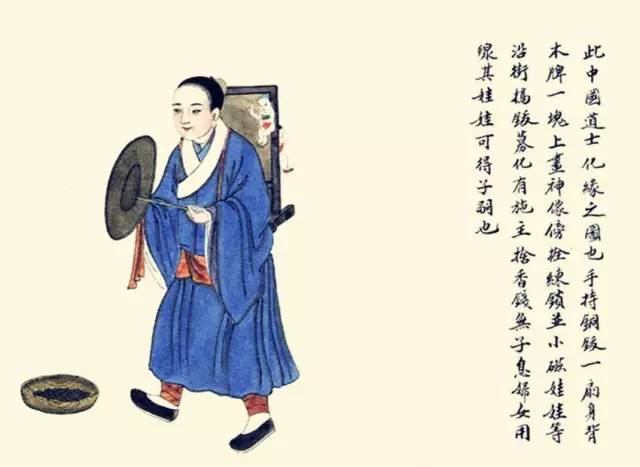 此中國道士化緣之圖也手持銅鈸一扇身背
木牌一塊上畫神像傍拴練鎖並小磁娃娃等
沿街搖鈸募化有施主捨香錢無子息婦女用
線其娃娃可得子嗣也